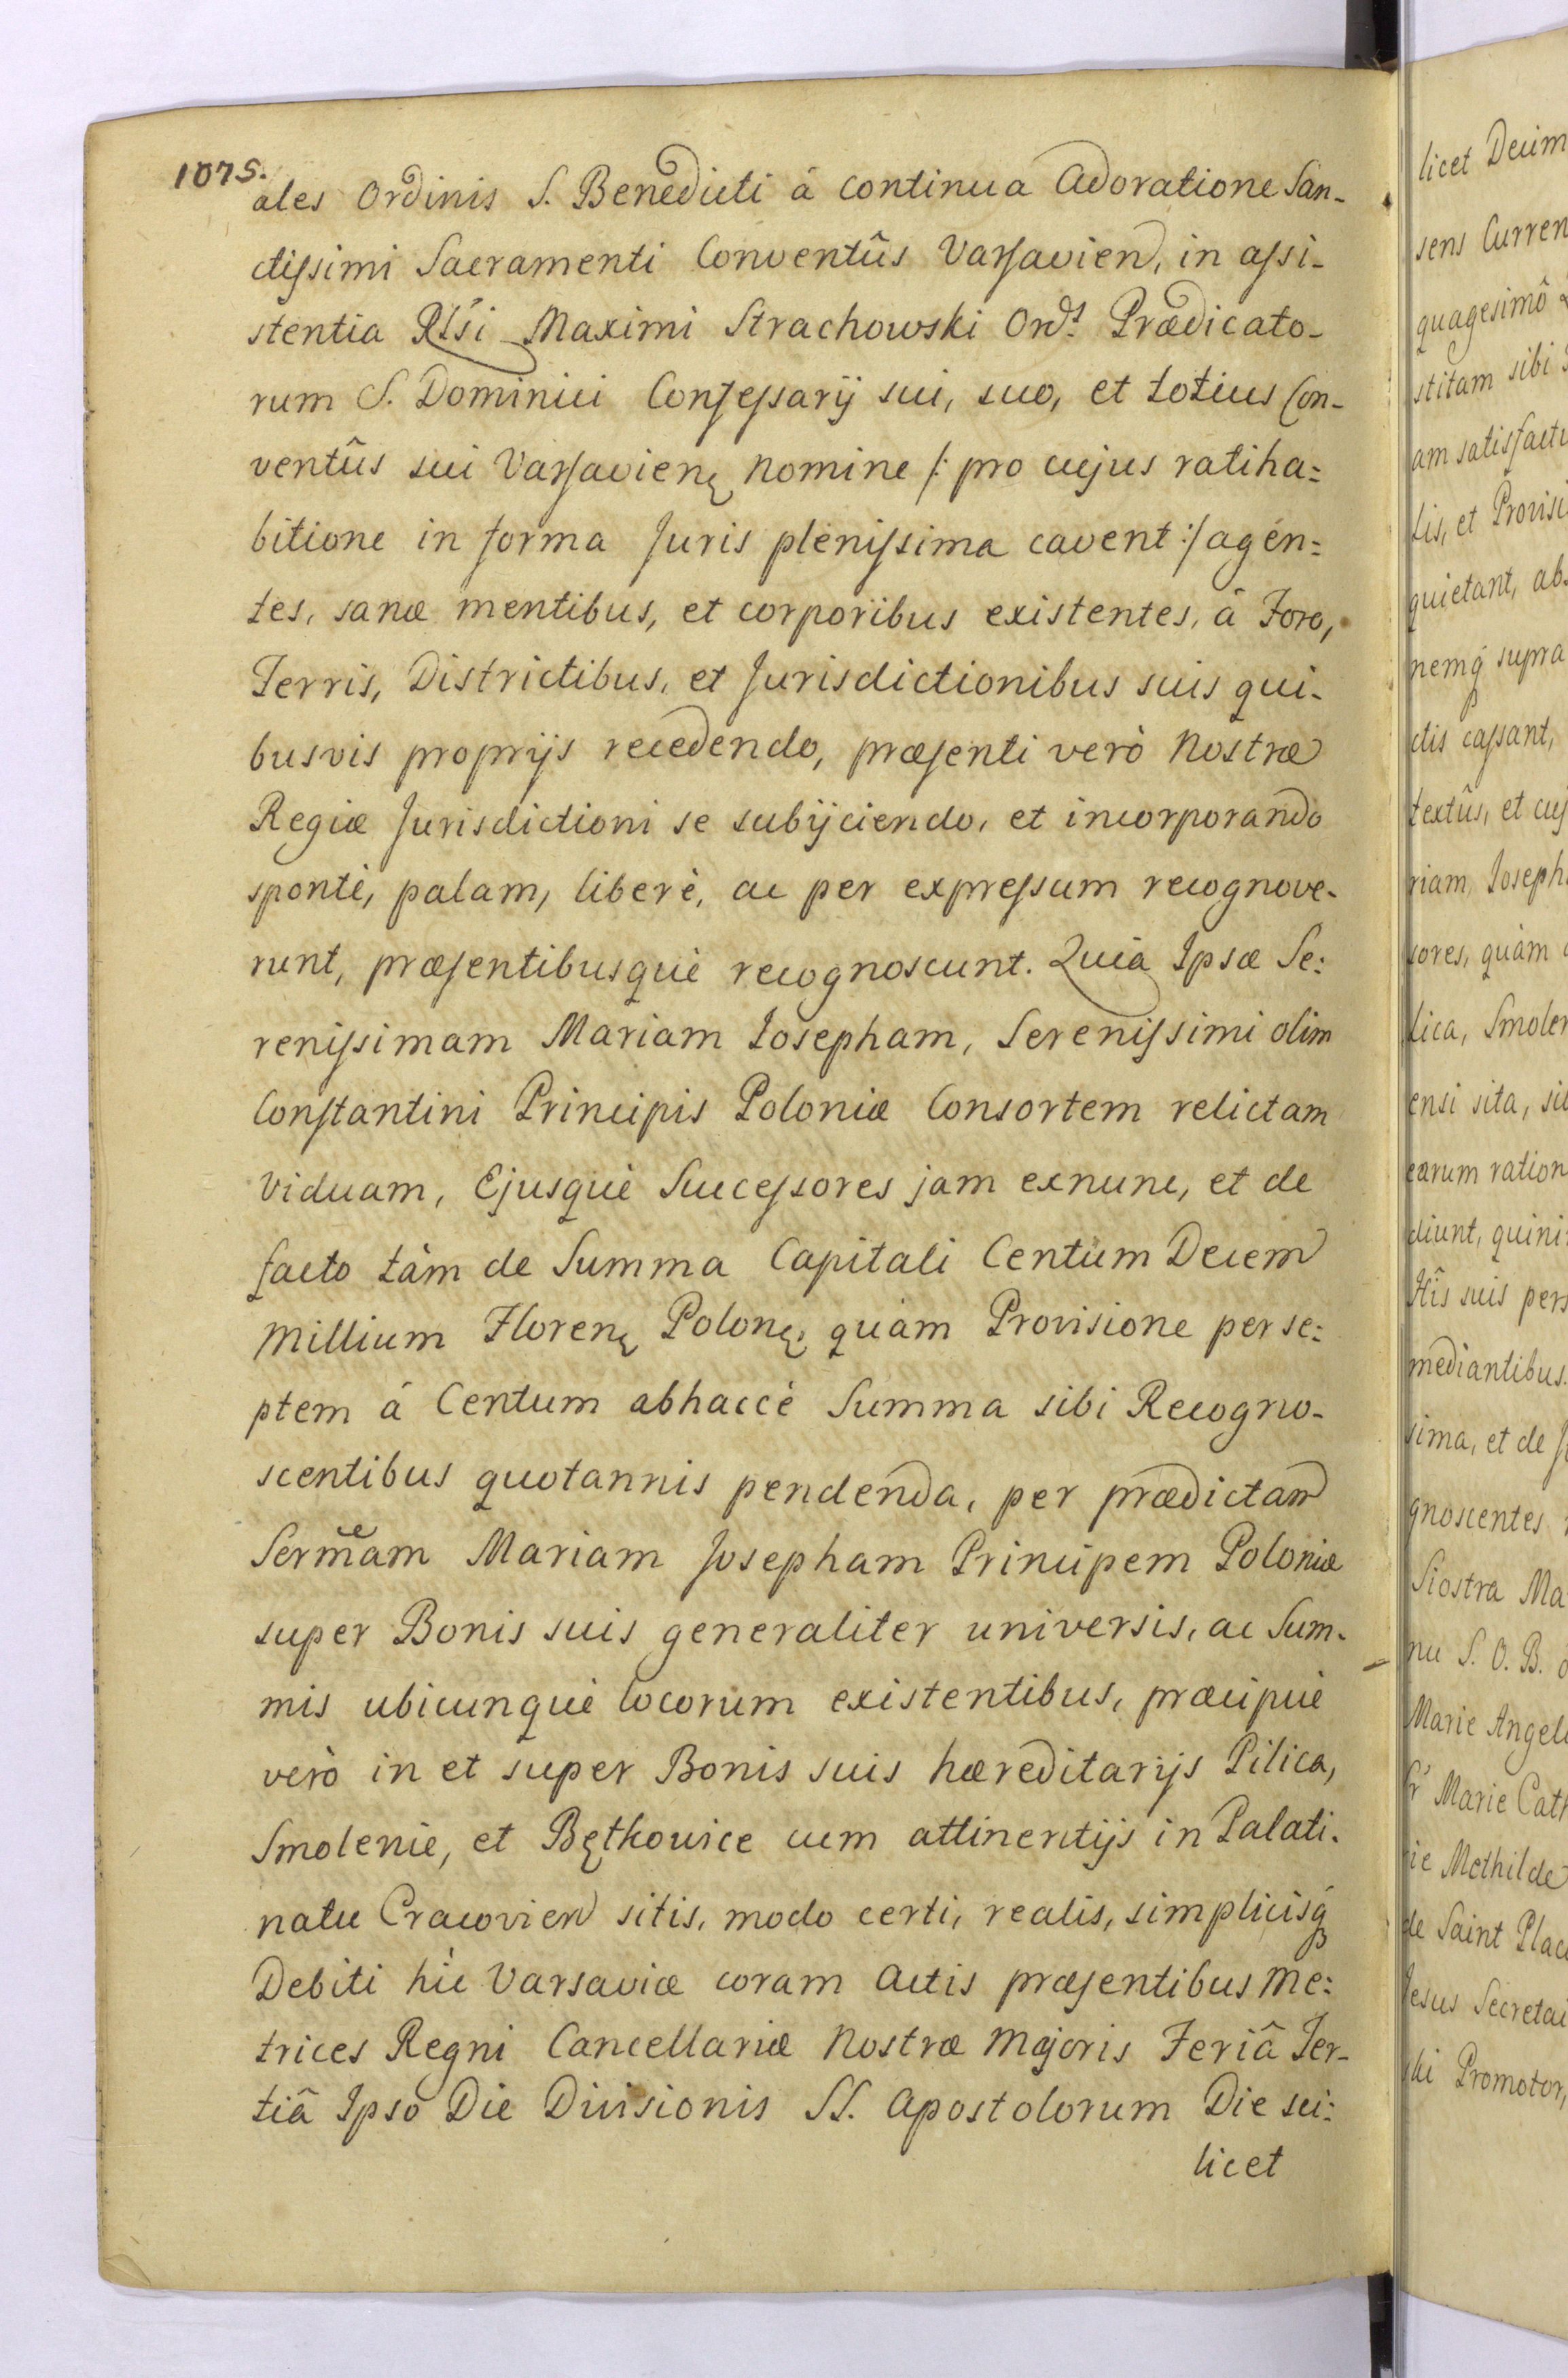 1075.
ales Ordinis S. Benedicti á continua Adoratione San-
ctissimi Sacramenti Conventûs Varsavien, in assi-
stentia Maximi Strachowski Ord.s Prædicato-
rum S. Dominici Confessarij sui, suo, et totius Con-
ventûs sui Varsavien nomine /: pro cujus ratiha=
bitione in forma Juris plenissima cavent :/ agén=
tes, sanæ mentibus, et corporibus existentes, á Foro,
Terris, Districtibus, et Jurisdictionibus suis qui-
busvis proprijs recedendo, præsenti verò Nostræ
Regiæ Jurisdictioni se subijciendo, et incorporando
spontè, palam, liberè, ac per expressum recognove-
runt, præsentibusquè recognoscunt. Quia Ipsæ Se:
renissimam Mariam Iosepham, Serenissimi olim
Constantini Principis Poloniæ Consortem relictam
Viduam, Ejusquè Successores jam exnunc, et de
facto tàm de Summa Capitali Centum Decem
Millium Floren Polon, quàm Provisione per se:
ptem á Centum abhaccè Summa sibi Recogno-
scentibus quotannis pendenda, per prædictam
Sermeam Mariam Josepham Principem Poloniæ
super Bonis suis generaliter universis, ac Sum-
mis ubicunquè locorum existentibus, præcipuè
verò in et super Bonis suis hæreditarijs Pilica,
Smolenie, et Bętkowice cum attinentijs in Palati-
natu Cracovien sitis, modo certi, realis, simplicisq́
Debiti hìc Varsaviæ coram Actis præsentibus Me:
trices Regni Cancellariæ Nostræ Majoris Feriâ Ter-
tiâ Ipsô Die Divisionis SS. Apostolorum Die sci:
licet
licet Decim
sens Curren
quagesimô
stitam sibi
am satisfacti
lis, et Provisi
quietant, ab
nemq́ supra
ctis cassant,
textûs, et cuj
riam, Joseph
sores, quàm
lica, Smolen
ensi sita, si
earum ration
diunt, quini
suis pers
mediantibus.
sima, et de
gnoscentes
Siostra Ma
nu S. O. B.
Marie Angel
Sr Marie Cath
ie Mcthilde
de Saint Plac
Jesus Secretai
ski Promotor,